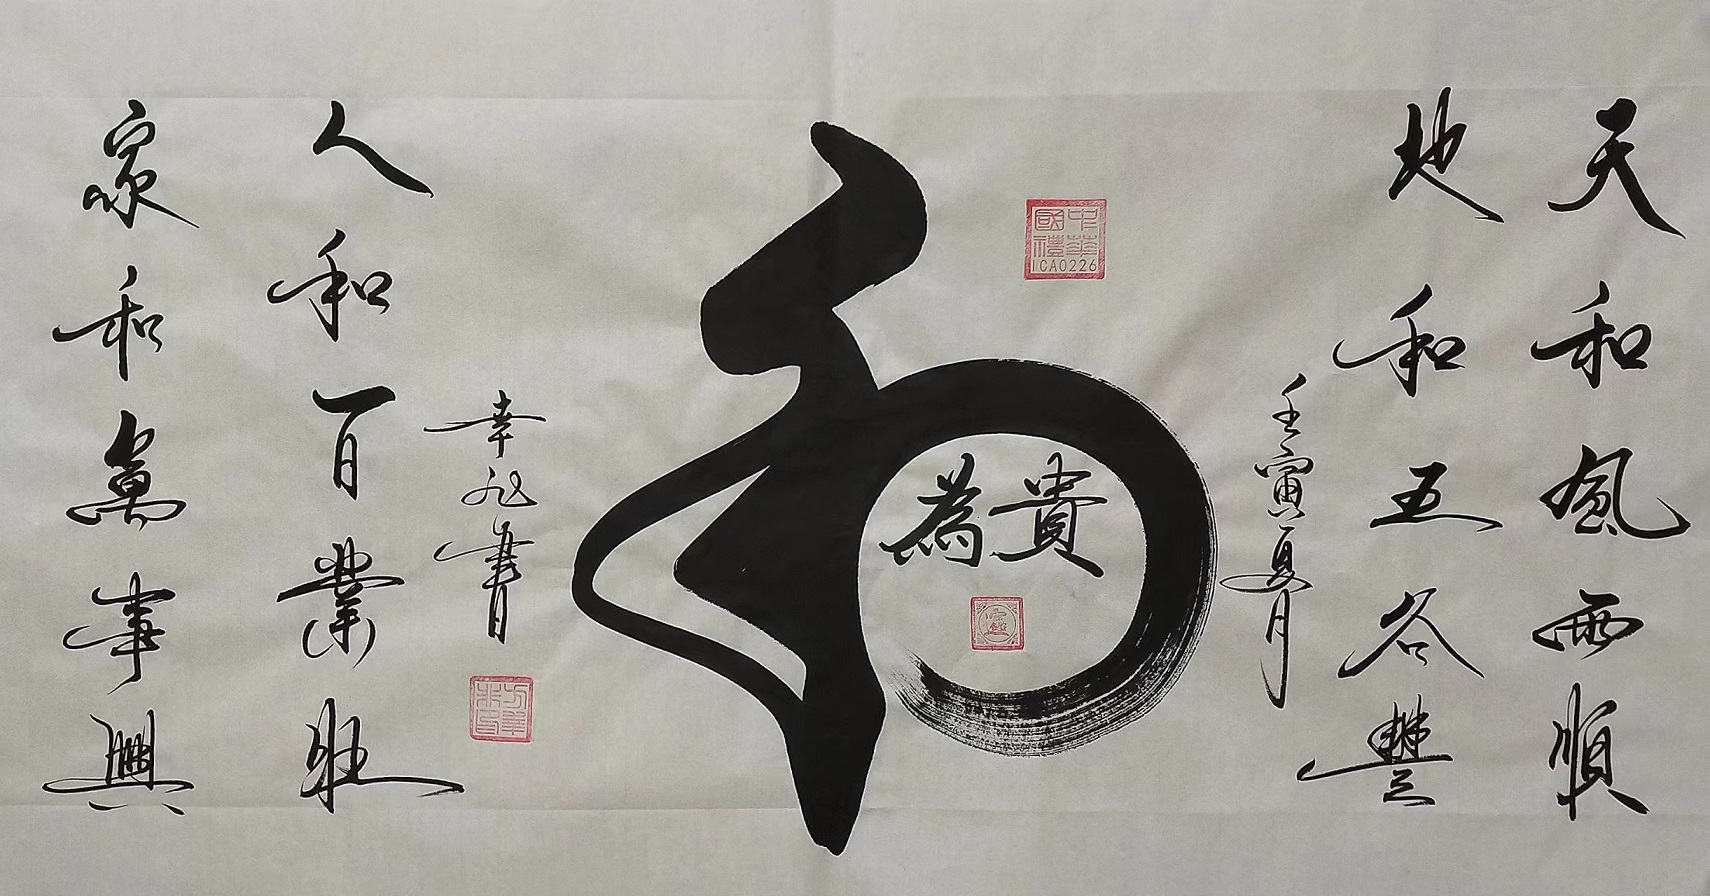 天和風雨順
地和五谷豐
壬寅夏月
中華國禮
ICA0226
和
為貴
幸 書
人和百業旺
家和萬事興